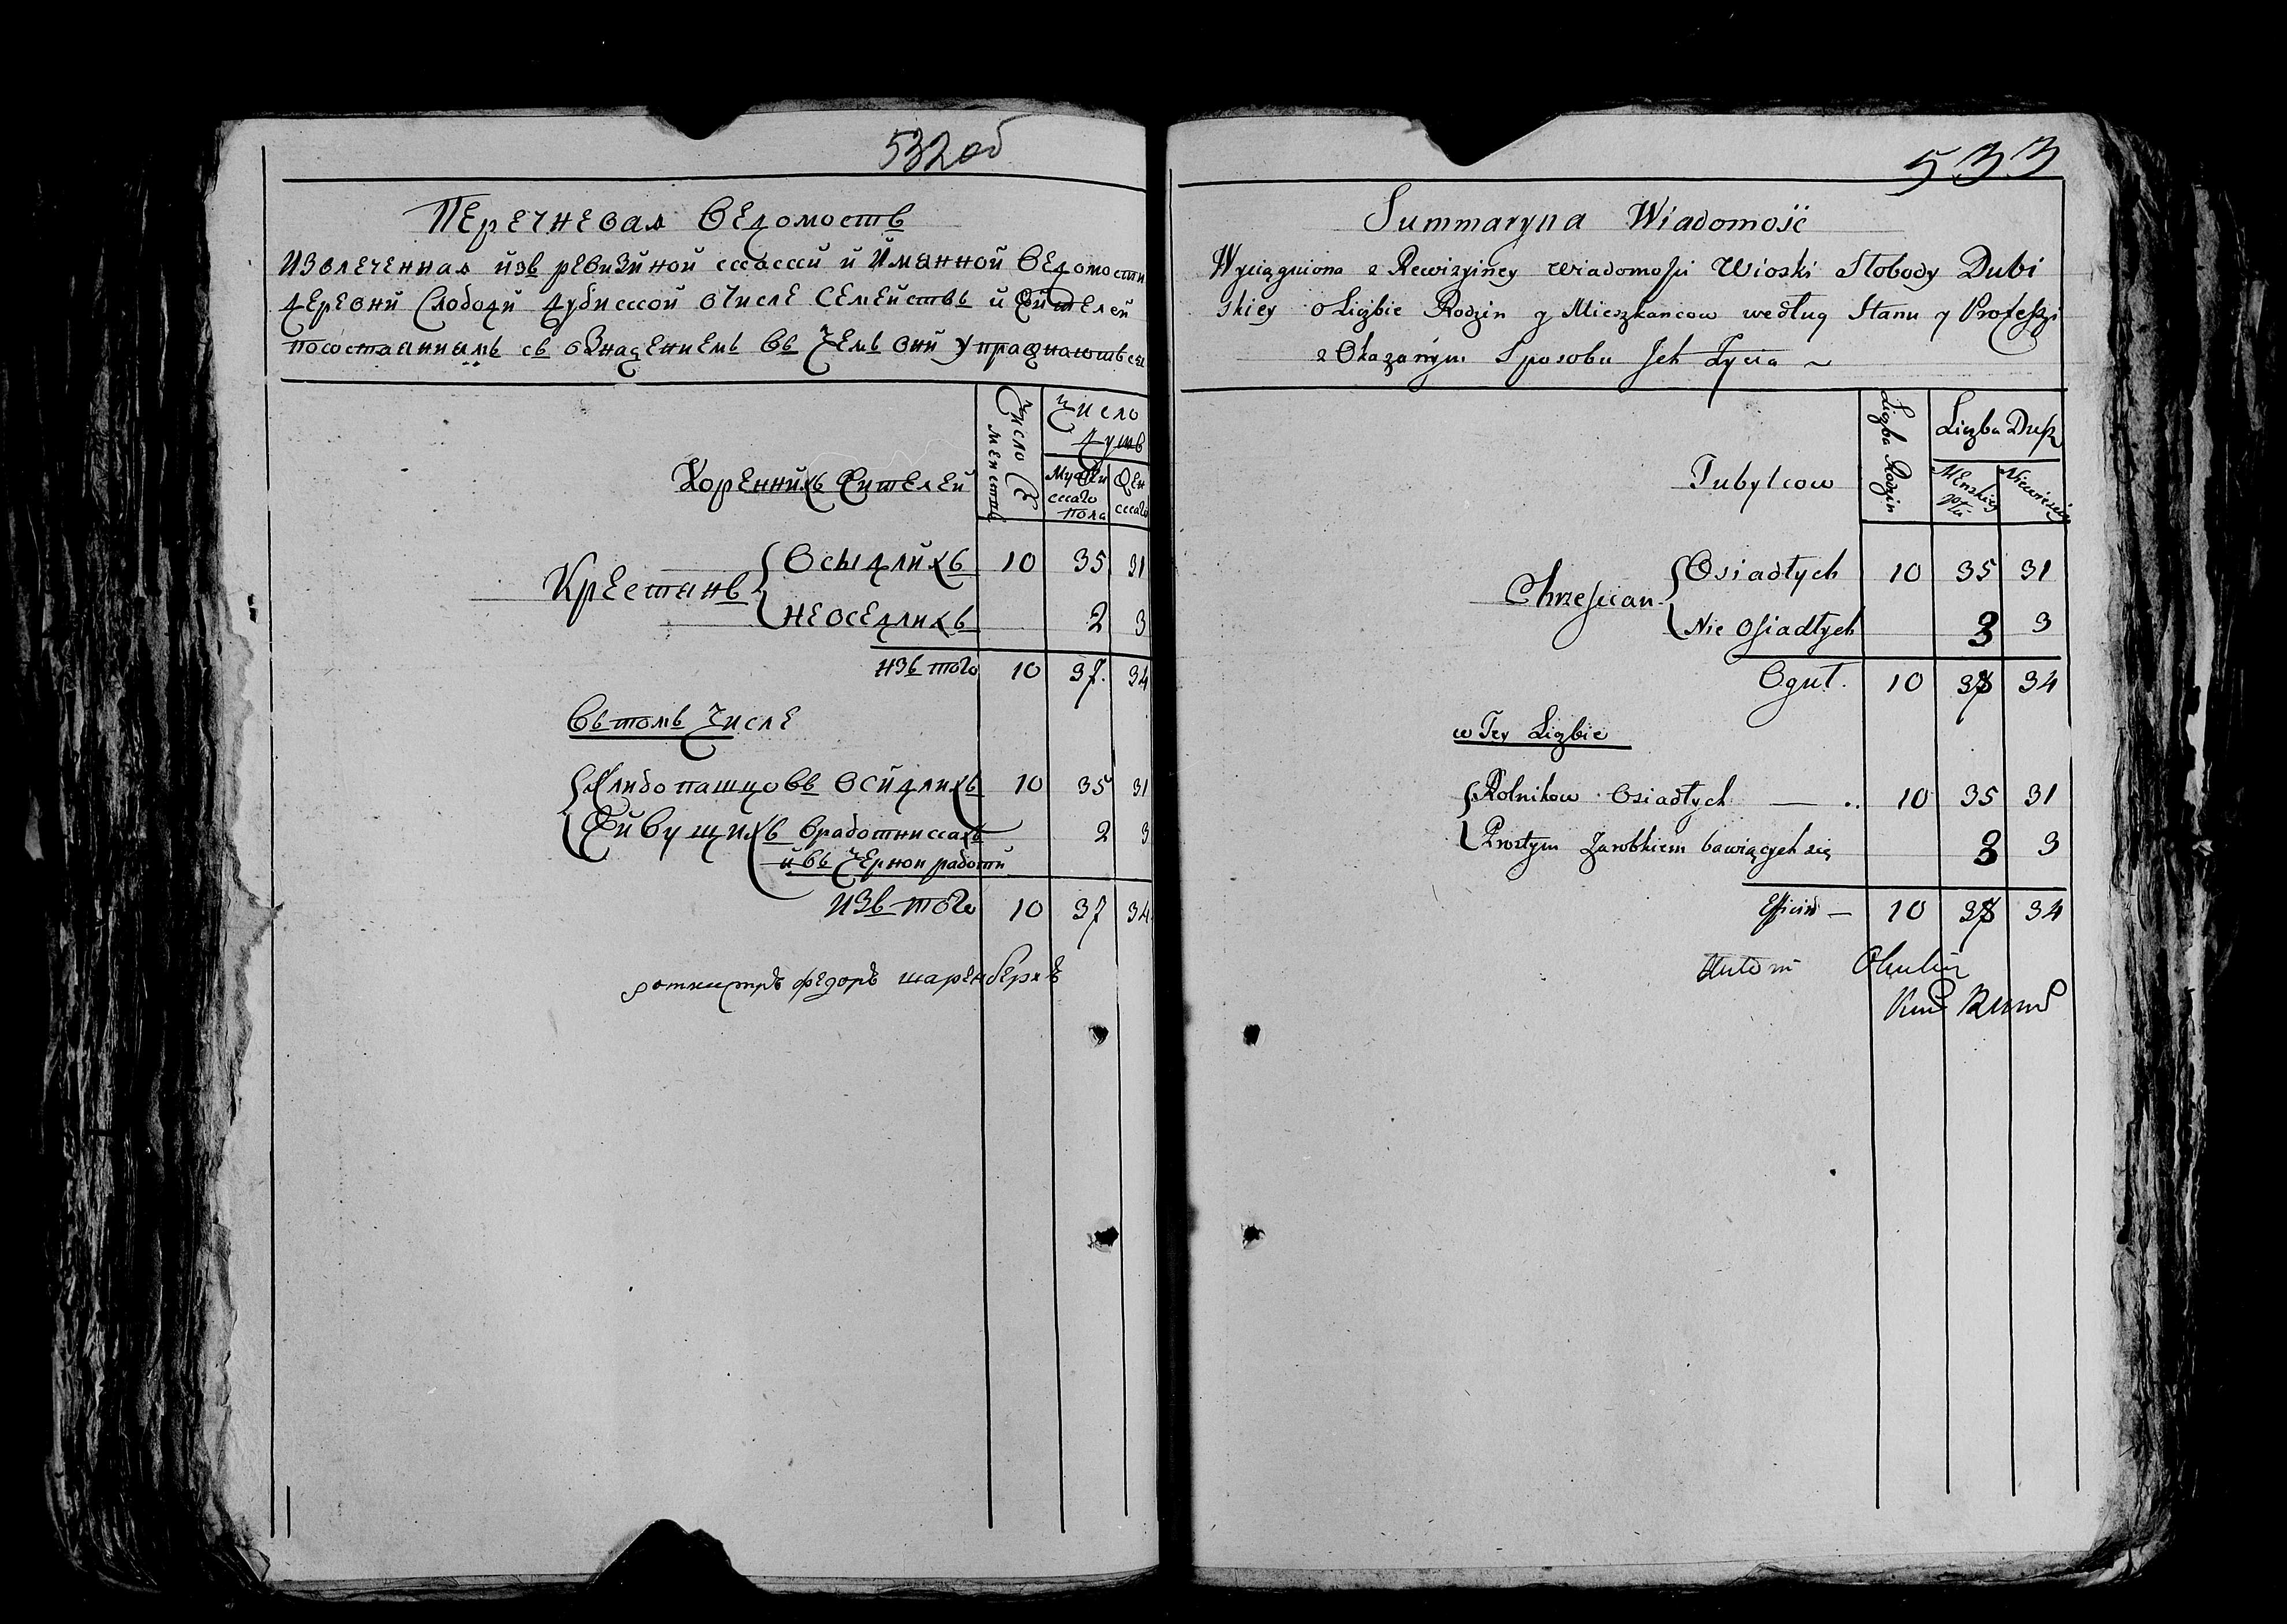 532об
Перечневая Ведомость
Извлеченная изъ ревизйной сказкй й Имянной Ведомости
деревнй Слободй Дубисской очисле Семействъ й Жйтелей
посостаянйямъ съ означенйемъ въ чемъ онй упражнаютьсея
Число Се
мейства
Число
душъ
Мужеи
скаго
пола
Жен
скаго
Коренныхъ Жителей
Крестянъ
Осыдлйхъ 10 35 31
неоседлихъ 2 3
изъ того 10 37. 34
Вътомъ Числе
Хлибопашцовъ осйдлихъ 10 35 31
Жйвущихъ вработникахъ 2 3
й въ Чернои работй
Изъ того 10 37 34
ротмистръ федоръ шаренбергъ
533
Summaryna Wiadomość
Wyciągniona z Rewizyiney wiadomosci Wioski Słobody Dubi
skiey o Liczbie Rodzin y Mieszkancow według Stanu y Professyi
z Okazanym Sposobu Jch Zycia ~
Liczba Rodzin
Liczba Dusz
Menskiey
płci
Niewiesciey
Tubylcow
Chrzescian
Osiadłych 10 35 31
Nie Osiadłych 3 3
Oguł. 10 38 34
w Tey Liczbie
Rolnikow Osiadłych — .. 10 35 31
Prostym Zarobkiem bawiących się 3 3
Efficit — 10 38 34
Antoni